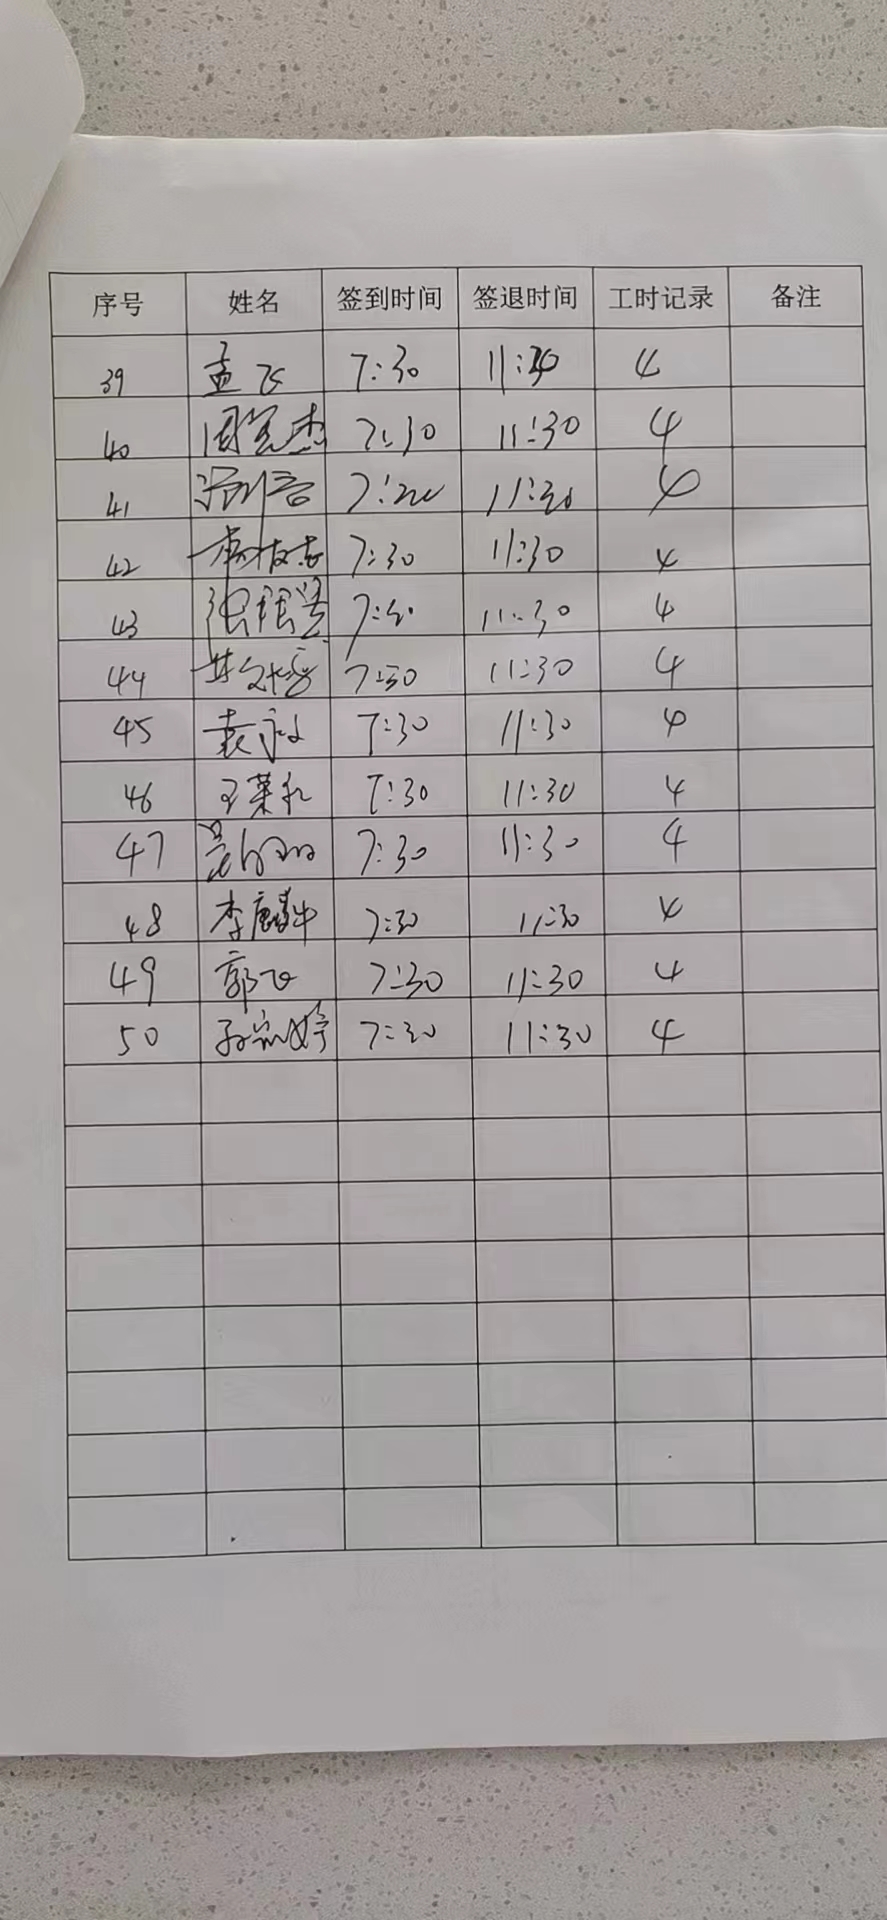 序号 姓名 签到时间 签退时间 工时记录 备注
39 孟飞 7:30 11:30 4
40 周 杰 7:30 11:30 4
41 7: 11:30 4
42 7:30 11:30 4
43 张 7:30 11:30 4
44 7:30 11:30 4
45 袁 7:30 11:30 4
46 王 7:30 11:30 4
47 7:30 11:30 4
48 李 7:30 11:30 4
49 郭飞 7:30 11:30 4
50 孙 婷 7:30 11:30 4